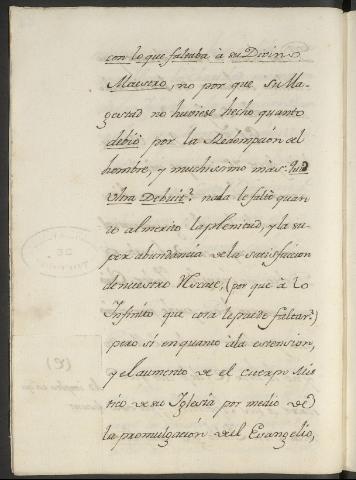 con lo que faltaba à su Divino
Maestro, no por que su Ma-
gestad no huviese hecho quanto
debiò por la Redempcion del
hombre, y muchissimo màs: quid
Ultra Debuit? nada le faltò quan
to al merito la plenitud, y la su-
per abundancia de la satisfaccion
de nuestro
(por que à lo
Infinito que cosa le puede faltar?)
pero sì en quanto àla estension,
y el aumento de el cuerpo Mis
tico de su Iglesia por medio de
la promulgaciòn del Evangelio,